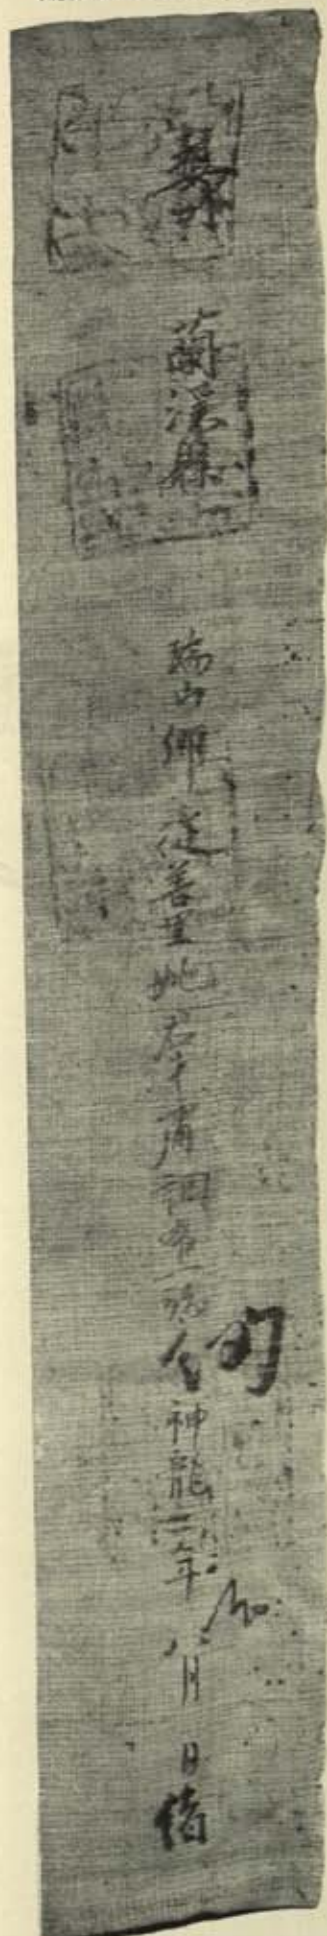 婺州 蘭溪縣 瑞山鄉從善里姚君才庸調布一端 神龍二年八月 日